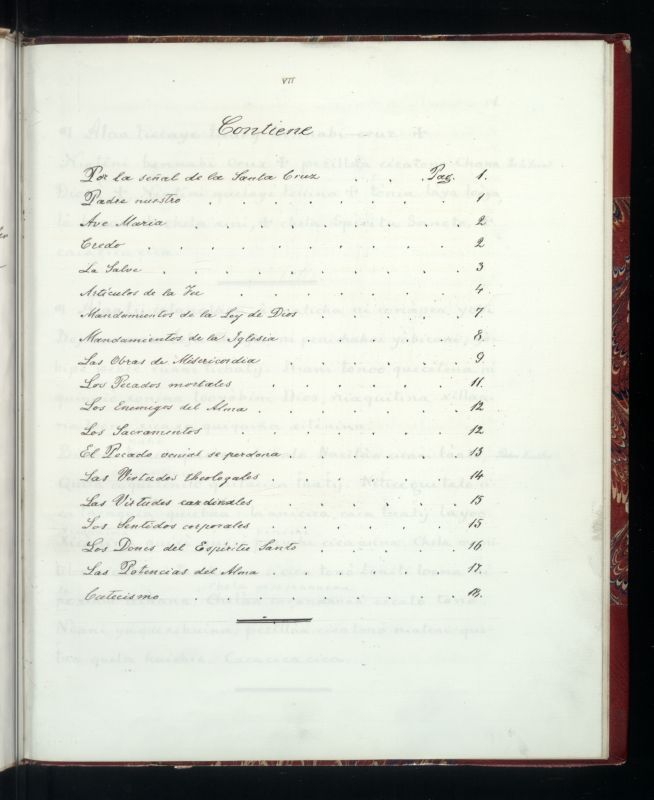 VII
Contiene
Por la señal de la Santa Cruz . . . Pag. 1.
Padre nuestro . . . . . . . . 1
Ave Maria . . . . . . . . 2
Credo . . . . . . . . . 2
La Salve . . . . . . . . . 3
Artículos de la Fee . . . . . . . 4
Mandamientos de la Ley de Dios . . . . . 7.
Mandamientos de la Iglesia . . . . . 8.
Las Obras de Misericordia . . . . . . 9
Los Pecados mortales . . . . . . . 11.
Los Enemigos del Alma . . . . . . . 12
Los Sacramentos . . . . . . . 12
El Pecado venial se perdona . . . . . . 13
Las Virtudes theologales . . . . . . . 14
Las Virtudes cardinales . . . . . . . 15
Los Sentidos corporales . . . . . . . 15
Los Dones del Espíritu Santo . . . . . 16
Las Potencias del Alma . . . . . . . 17.
Catecismo . . . . . . . . 18.